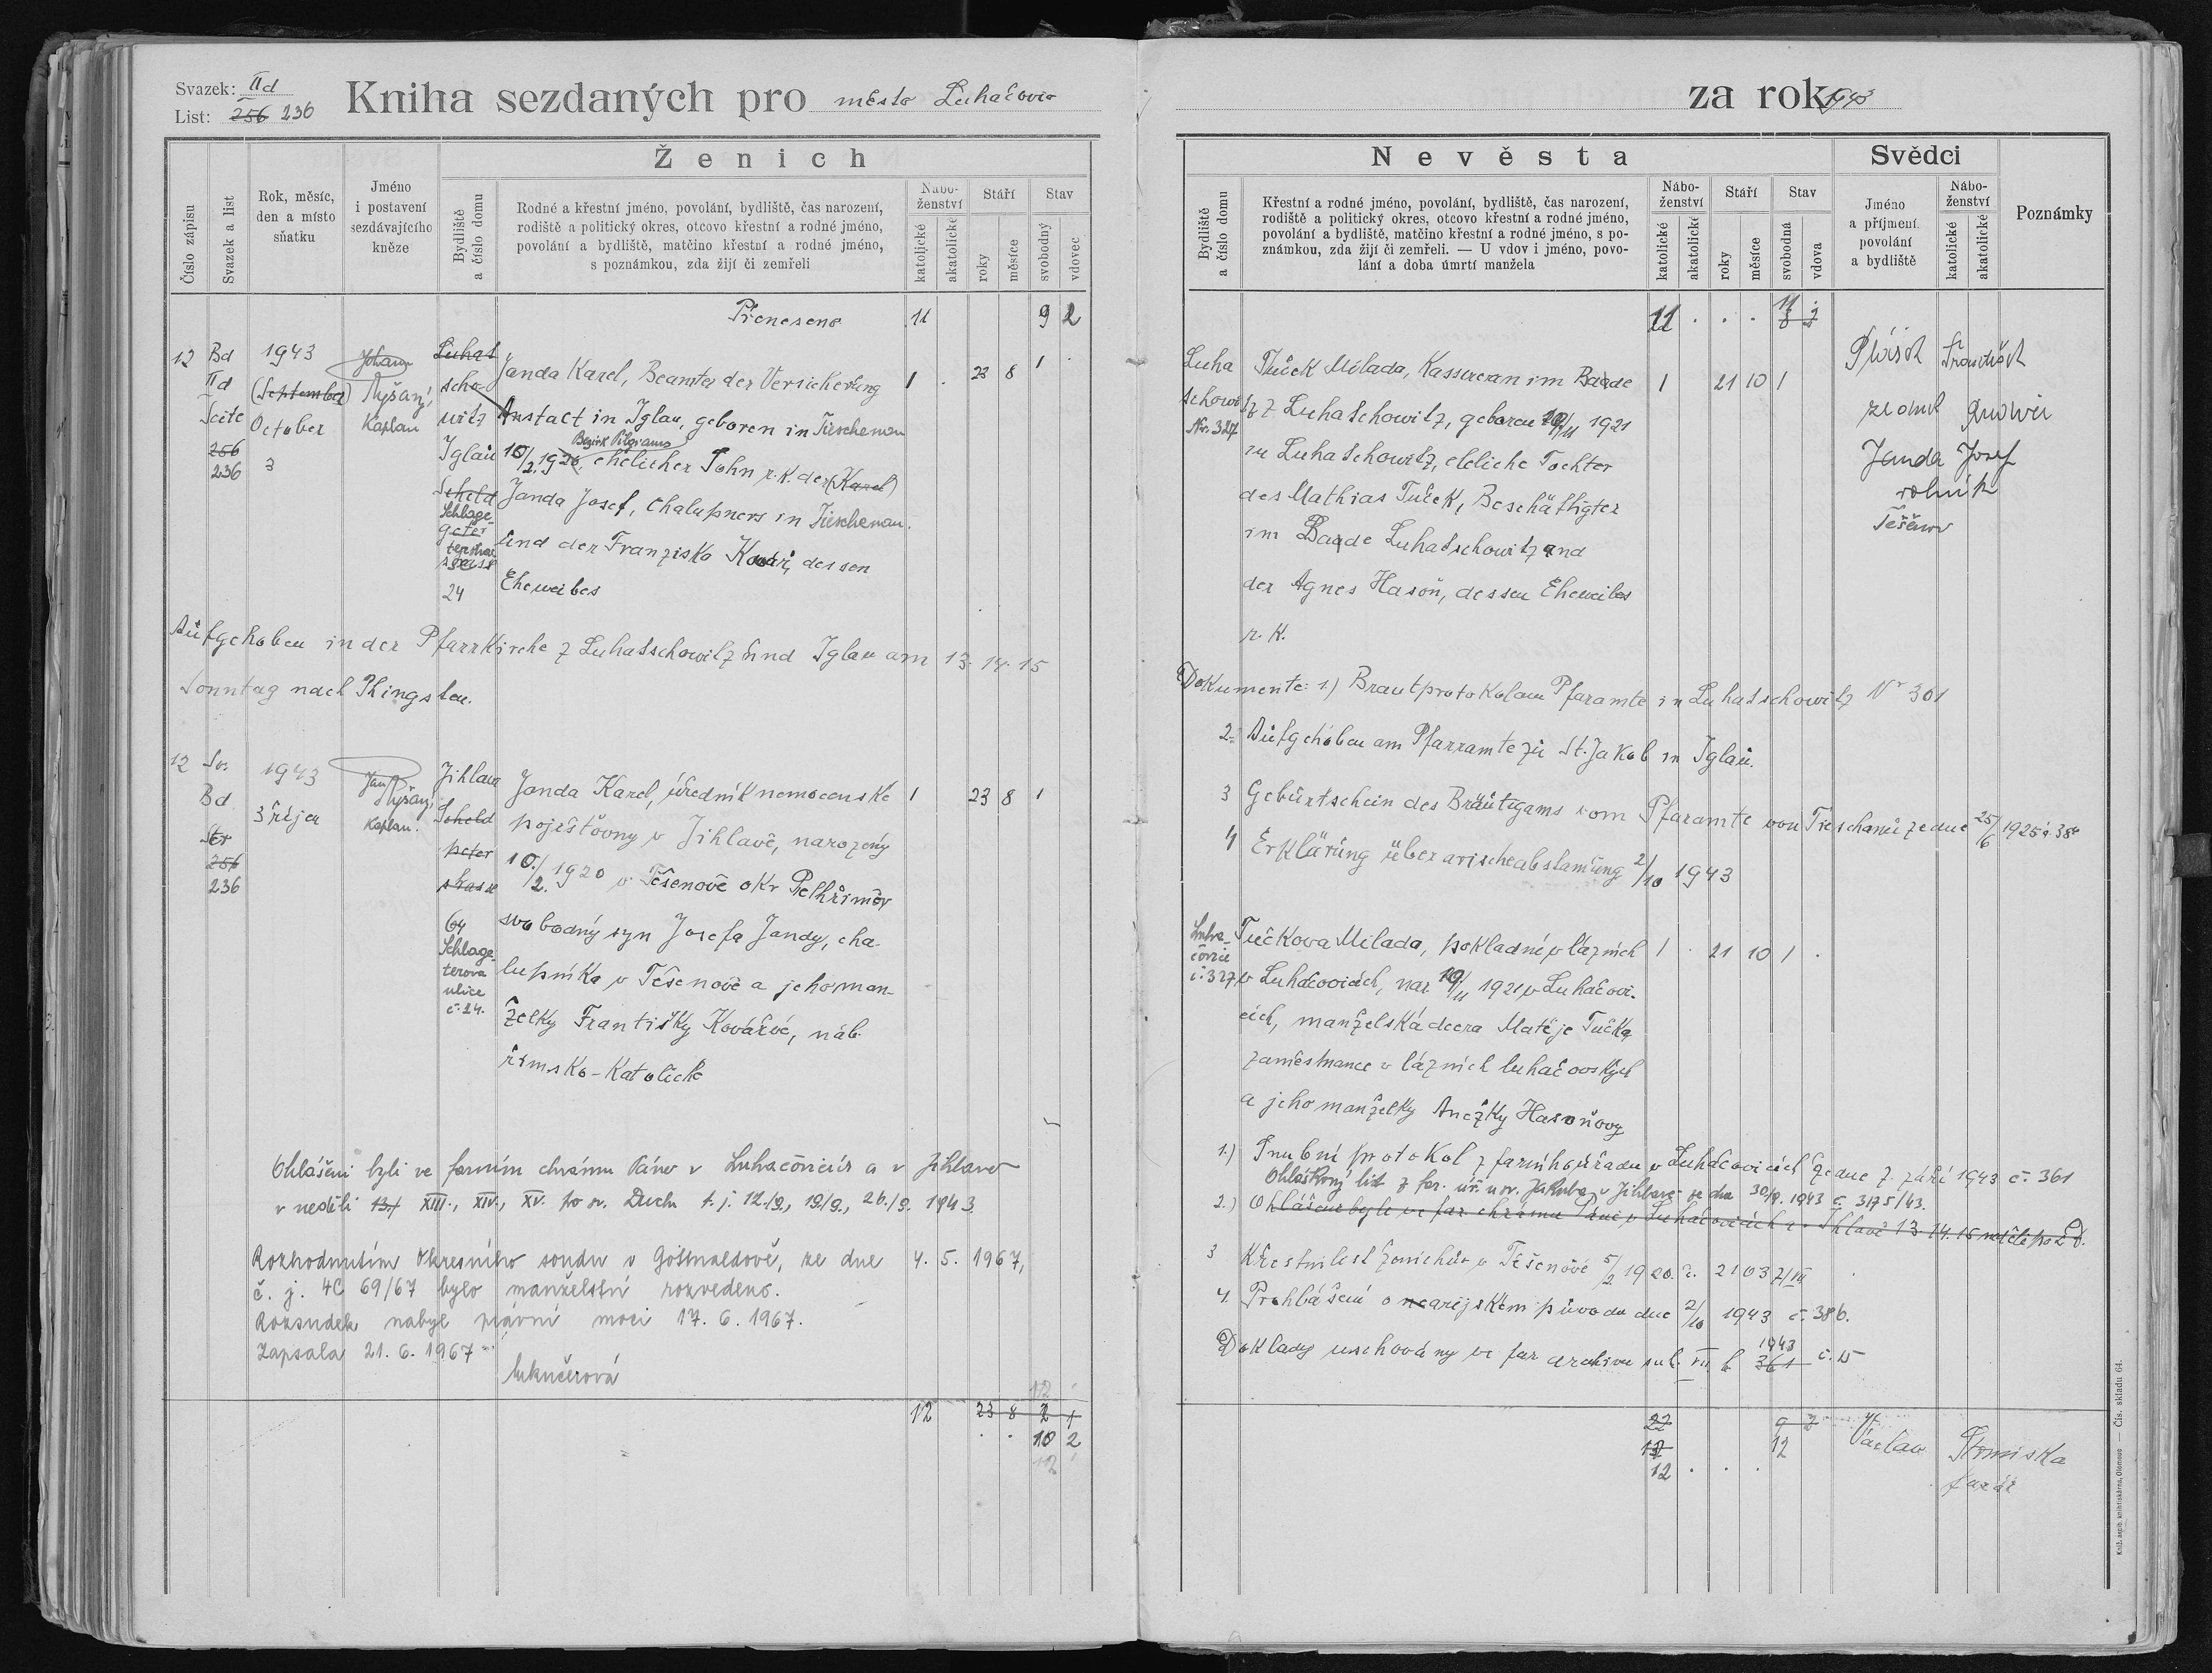 Svazek: IId
List: 256 236
Kniha sezdaných pro města Luhačovic
Ženich
Číslo zápisu
Svazek a list
Rok, měsíc,
den a místo
sňatku
Jméno
i postavení
sezdávajícího
kněze
Bydliště
a číslo domu
Rodné a křestní jméno, povolání, bydliště, čas narození,
rodiště a politický okres, otcovo křestní a rodné jméno,
povolání a bydliště, matčino křestní a rodné jméno,
s poznámkou, zda žijí či zemřeli
Nábo-
ženství
katolické
akatolické
Stáří
roky
měsíce
Stav
svobodný
vdovec
Přeneseno 11 9 2
12
Bd
IId
Seite
256
236
1943
(September)
October
3
Johann
Ryšaný,
Kaplan
Luhat
scho-
witz
Iglau
Scheld
Schlage-
geter
terstras
strasse
24
Janda Karel, Beamter der Versicherung 1 . 23 8 1
Anstalt in Iglau, geboren in Tieschenau
Bezirk Pilgrams
10/2. 1920, ehelicher Sohn r.k. der (Karel)
Janda Josef, Chalupners in Tieschenau.
und der Franziska Kovář, dessen
Eheweibes
Aufgehoben in der Pfarrkirche z Luhatschowitz und Iglau am 13. 14. 15
Sonntag nach Phingsten.
12
Sv.
Bd
Str
256
236
1943
3 říjen
Jan
Ryšaný,
Kaplan.
Jihlava
Scheld
peter
strasse
64
Schlage-
terova
ulice
č. 24.
Janda Karel, úředník nemocenské 1 23 8 1
pojišťovny v Jihlavě, narozený
10./2. 1920 v Těšenově okr Pelhřimov
svobodný syn Josefa Jandy, cha-
lupníka v Těšenově a jeho man-
želky Františky Kovářvé, náb.
římsko-katolické
Ohlášeni byli ve farním chrámu Páně v Luhačovicích a v Jihlavě
v neděli 13.) XIII., XIV., XV. po sv. Duchu t. j. 12./9., 19./9., 26./9. 1943.
Rozhodnutím Okresního soudu v Gottwaldově, ze dne 4. 5. 1967,
č. j. 4C 69/67 bylo manželství rozvedeno.
Rozsudek nabyl právní moci 17. 6. 1967.
Zapsala 21. 6. 1967
12
12 23 8 2 1
. . 10 2
12
za rok 1943
Nevěsta
Svědci
Bydliště
a číslo domu
Křestní a rodné jméno, povolání, bydliště, čas narození,
rodiště a politický okres, otcovo křestní a rodné jméno,
povolání a bydliště, matčino křestní a rodné jméno, s po-
známkou, zda žijí či zemřeli. — U vdov i jméno, povo-
lání a doba úmrtí manžela
Nábo-
ženství
katolické
akatolické
Stáří
roky
měsíce
Stav
svobodná
vdova
Jméno
a příjmení
povolání
a bydliště
Nábo-
ženství
katolické
akatolické
Poznámky
11 . . . 11
8 2
Luha
tschowi
Nr. 327
Tuček Milada, Kassiereran im Baade 1 21 10 1
tz z Luhatschowitz, geboren 19/11 1921
zu Luhatschowitz, eheliche Tochter
des Mathias Tuček, Beschäftigter
im Baade Luhatschowitz und
der Agnes Hasoň, dessen Eheweibes
r. k.
František
Janda Josef
rolník
Těšenov
Dokumente: 1.) Brautprotokolam Pfaramte in Luhatschowitz Nr 301
2. Aufgehoben am Pfarramte zu St. Jakob in Iglau.
3 Geburtschein des Bräutigams vom Pfaramte von Tieschanu ze dne 25/6 1925
4 Erklärung über arischeabstamung 2/10 1943
Luha-
čovice
č. 327
Tučkova Milada, pokladní v lázních 1 . 21 10 1 .
v Luhačovicích, nar 19/11 1921 v Luhačovi-
cích, manželská dcera Matěje Tučka,
zaměstnance v lázních luhačovských
a jeho manželky Anežky Hasoňovy
1.) Snubní protokol z farního úřadu v Luhačovicích ze dne 7. září 1943 č. 361
Ohláškový list z far. úř. u sv. Jakuba v Jihlavě ze dne 30/9. 1943 č. 3175/43.
2.) Ohlášeni byli ve far. chrámu Páně v Luhačovicích a v Jihlavě 13 14. 15 neděli po D.
3 Křestní list ženichův v Těšenově 5/2 1920. č. 2103
4. Prohlášení o nearijském původu dne 2/10 1943 č. 386.
Doklady uschovány ve far archivu sub. VII b 361 1943 č. 15
22 9 2
12 12
12 . . .
Václav
farář
Kniž. akciová knihtiskárna, Olomouc — Čís. skladu 64.